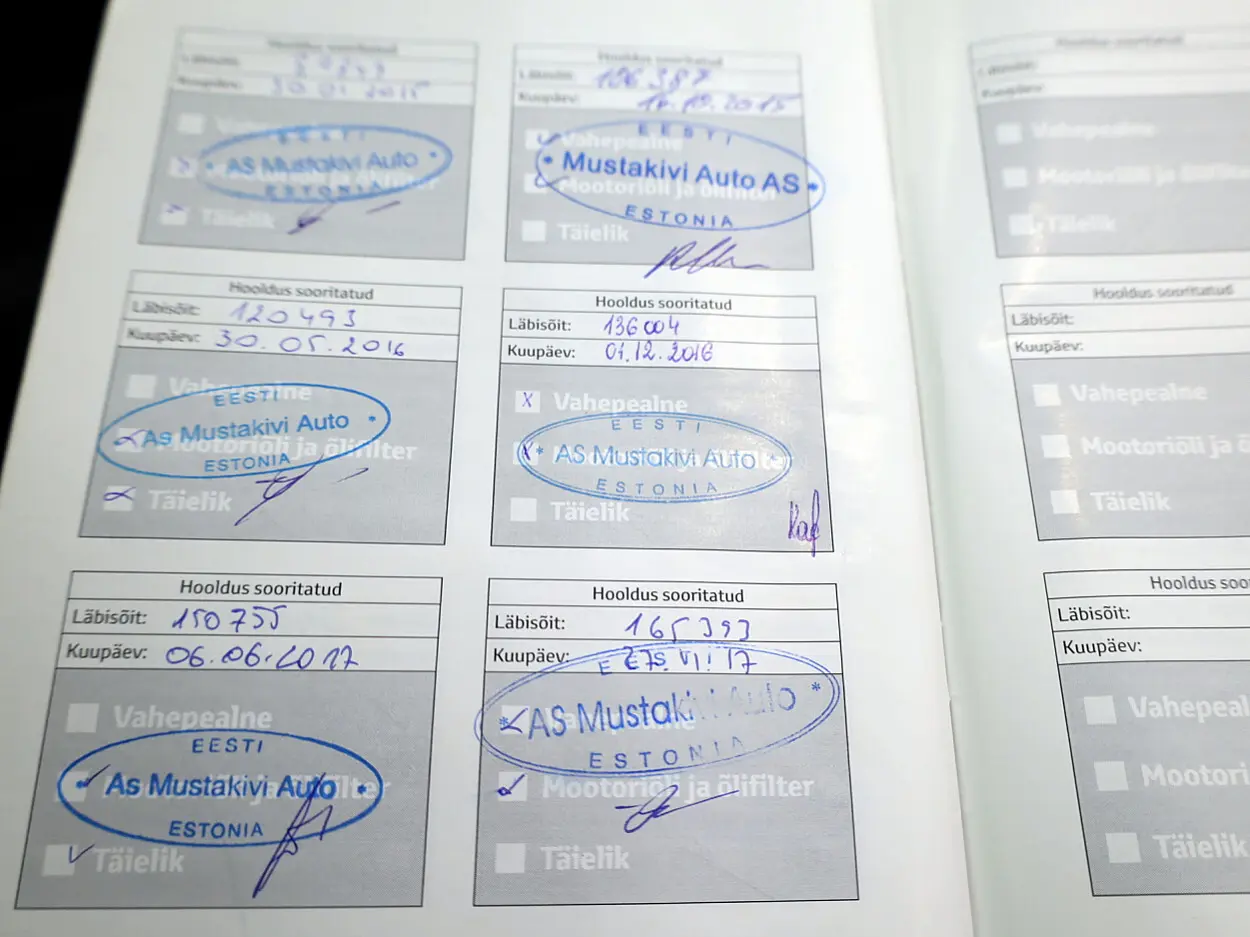 Hooldus sooritatud
Läbisõit:
Kuupäev: 30.01.2015
EESTI
AS Mustakivi Auto
ESTONIA
Täielik
Hooldus sooritatud
Läbisõit: 106 387
Kuupäev: 2015
Vahepealne
EESTI
Mustakivi Auto AS
Mootoriõli ja õlifilter
ESTONIA
Täielik
Hooldus sooritatud
Läbisõit: 120 493
Kuupäev: 30.05.2016
Vahepealne
EESTI
As Mustakivi Auto
Mootoriõli ja õlifilter
ESTONIA
Täielik
Hooldus sooritatud
Läbisõit: 136 004
Kuupäev: 01.12.2016
Vahepealne
EESTI
AS Mustakivi Auto
ESTONIA
Täielik
Hooldus sooritatud
Läbisõit: 150 755
Kuupäev: 06.06.2017
Vahepealne
EESTI
As Mustakivi Auto
ESTONIA
Täielik
Hooldus sooritatud
Läbisõit: 165 393
Kuupäev:
AS Mustakivi Auto
ESTONIA
Mootoriõli ja õlifilter
Täielik
Hooldus sooritatud
Läbisõit:
Kuupäev:
Vahepealne
Mootoriõli ja õlifilter
Täielik
Hooldus sooritatud
Läbisõit:
Kuupäev:
Vahepealne
Mootoriõli ja õ
Täielik
Hooldus soo
Läbisõit:
Kuupäev:
Vahepeal
Mootori
Täielik